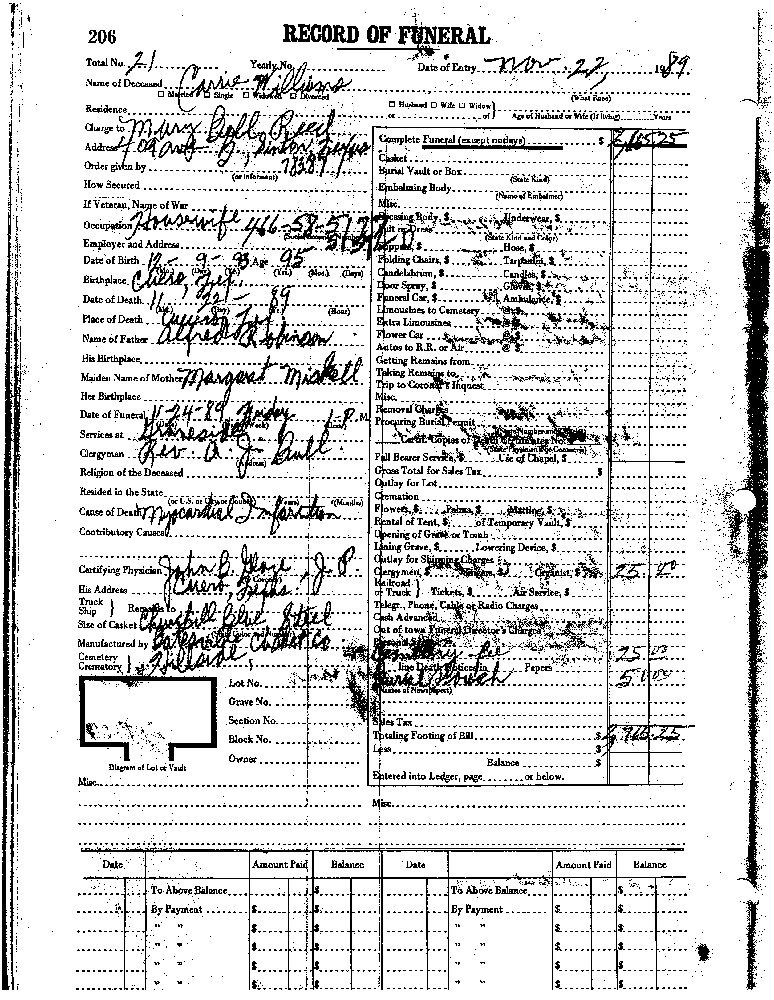 206 RECORD OF FUNERAL
Total No. 21 Yearly No. Date of Entry Nov. 22, 1989
Name of Deceased Carrie Williams
Married Single Widowed Divorced (What Race)
Residence Husband Wife Widow
or of Age of Husband or Wife (if living) Years
Charge to Mary Bell Reed
Address
Order given by (or informant)
How Secured
If Veteran, Name of War
Occupation Housewife
Employer and Address
Date of Birth 12 - 9 - 93 Age 95
(Yrs.) (Mos.) (Days)
Birthplace Cuero, Tex.
Date of Death 11 22 - 89
(Hour)
Place of Death
Name of Father Alfred Robinson
His Birthplace
Maiden Name of Mother Margaret
Her Birthplace
Date of Funeral 11-24-89 Friday 1 P. M.
Services at Graveside
Clergyman Rev. A. J.
Religion of the Deceased
Resided in the State
(or U.S. or City or County) (Years) (Months)
Cause of Death Myocardial Infarction
Contributory Causes
Certifying Physician John J. P.
His Address Cuero, Texas
Truck
Ship } Remains to
Size of Casket Churchill Blue Steel
Manufactured by Batesville Casket Co.
Cemetery
Crematory } Hillside
Lot No.
Grave No.
Section No.
Block No.
Owner
Diagram of Lot or Vault
Misc.
Complete Funeral (except outlays) $
Casket
Burial Vault or Box
(State Kind)
Embalming Body
(Name of Embalmer)
Misc.
Dressing Body, $ Underwear, $
Suit or Dress
(State Kind and Color)
Slippers, $ Hose, $
Folding Chairs, $ Tarpaulin, $
Candelabrum, $ Candles, $
Door Spray, $ Gloves, $
Funeral Car, $ Ambulance, $
Limousines to Cemetery @ $
Extra Limousines @ $
Flower Car @ $
Autos to R.R. or Air @ $
Getting Remains from
Taking Remains to
Trip to Coroner's Inquest
Misc.
Removal Charge
Procuring Burial Permit
Certif. Copies of Death Certificates No.
Pall Bearer Service, $ Use of Chapel, $
Gross Total for Sales Tax $
Outlay for Lot
Cremation
Flowers, $ Palms, $ Matting, $
Rental of Tent, $ of Temporary Vault, $
Opening of Grave or Tomb
Lining Grave, $ Lowering Device, $
Outlay for Shipping Charges
Clergymen, $ Singers, $ Organist, $ 25.00
Railroad
or Truck } Tickets, $ Air Service, $
Telegr., Phone, Cable or Radio Charges
Cash Advanced
Out of town Funeral Director's Charges
Personal Service
Cemetery fee 25 00
line Death Notices in Papers
(Names of Newspapers)
Sales Tax
Totaling Footing of Bill $
Less $
Balance $
Entered into Ledger, page or below.
Misc.
Date Amount Paid Balance Date Amount Paid Balance
To Above Balance $ To Above Balance $
By Payment $ $ By Payment $ $
" " $ $ " " $ $
" " $ $ " " $ $
" " $ $ " " $ $
" " $ $ " " $ $